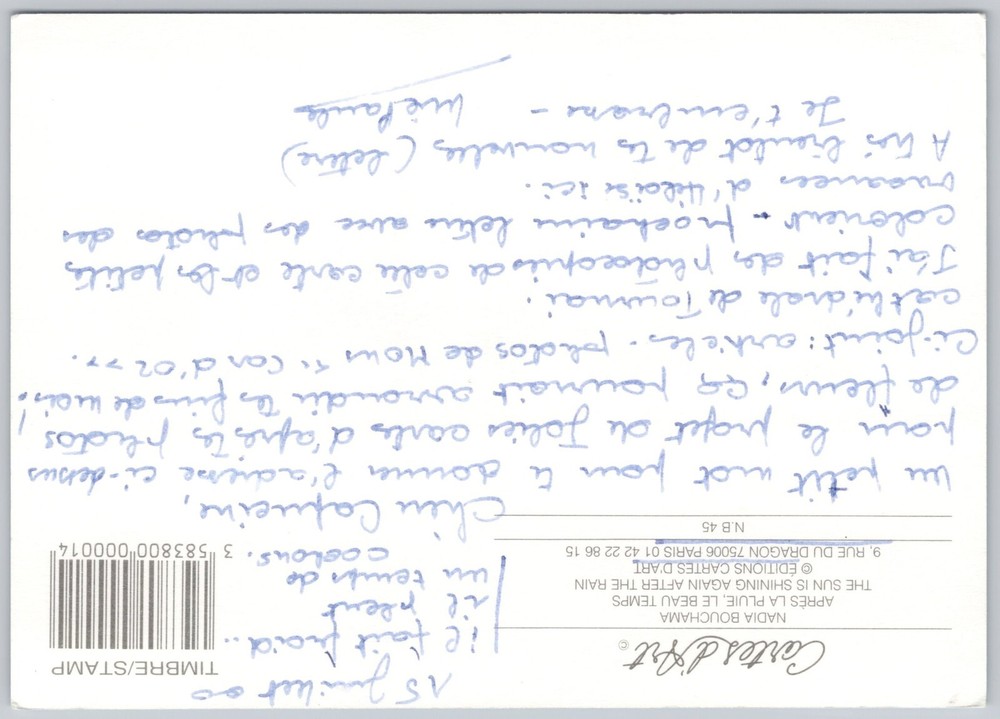 Cartes d'Art ©
NADIA BOUCHAMA
APRÈS LA PLUIE, LE BEAU TEMPS
THE SUN IS SHINING AGAIN AFTER THE RAIN
© ÉDITIONS CARTES D'ART
9, RUE DU DRAGON 75006 PARIS 01 42 22 86 15
N.B 45
TIMBRE/STAMP
3 583800 000014
15 Juillet 00
il fait froid..
il pleut
un temps de
Chère Capucine,
un petit mot pour te donner l'adresse ci-dessus
pour le projet de jolies cartes d'après tes photos
de fleurs, ça pourrait arrondir tes fins de mois!
Ci-joint: articles - photos de Mons "Car d'Or".
cathédrale de Tournai.
J'ai fait des photocopies de cette carte et les petits
colorient - prochaine lettre avec des photos des
vacances d'Héloïse ici.
A très bientôt de tes nouvelles (lettre)
Je t'embrasse -